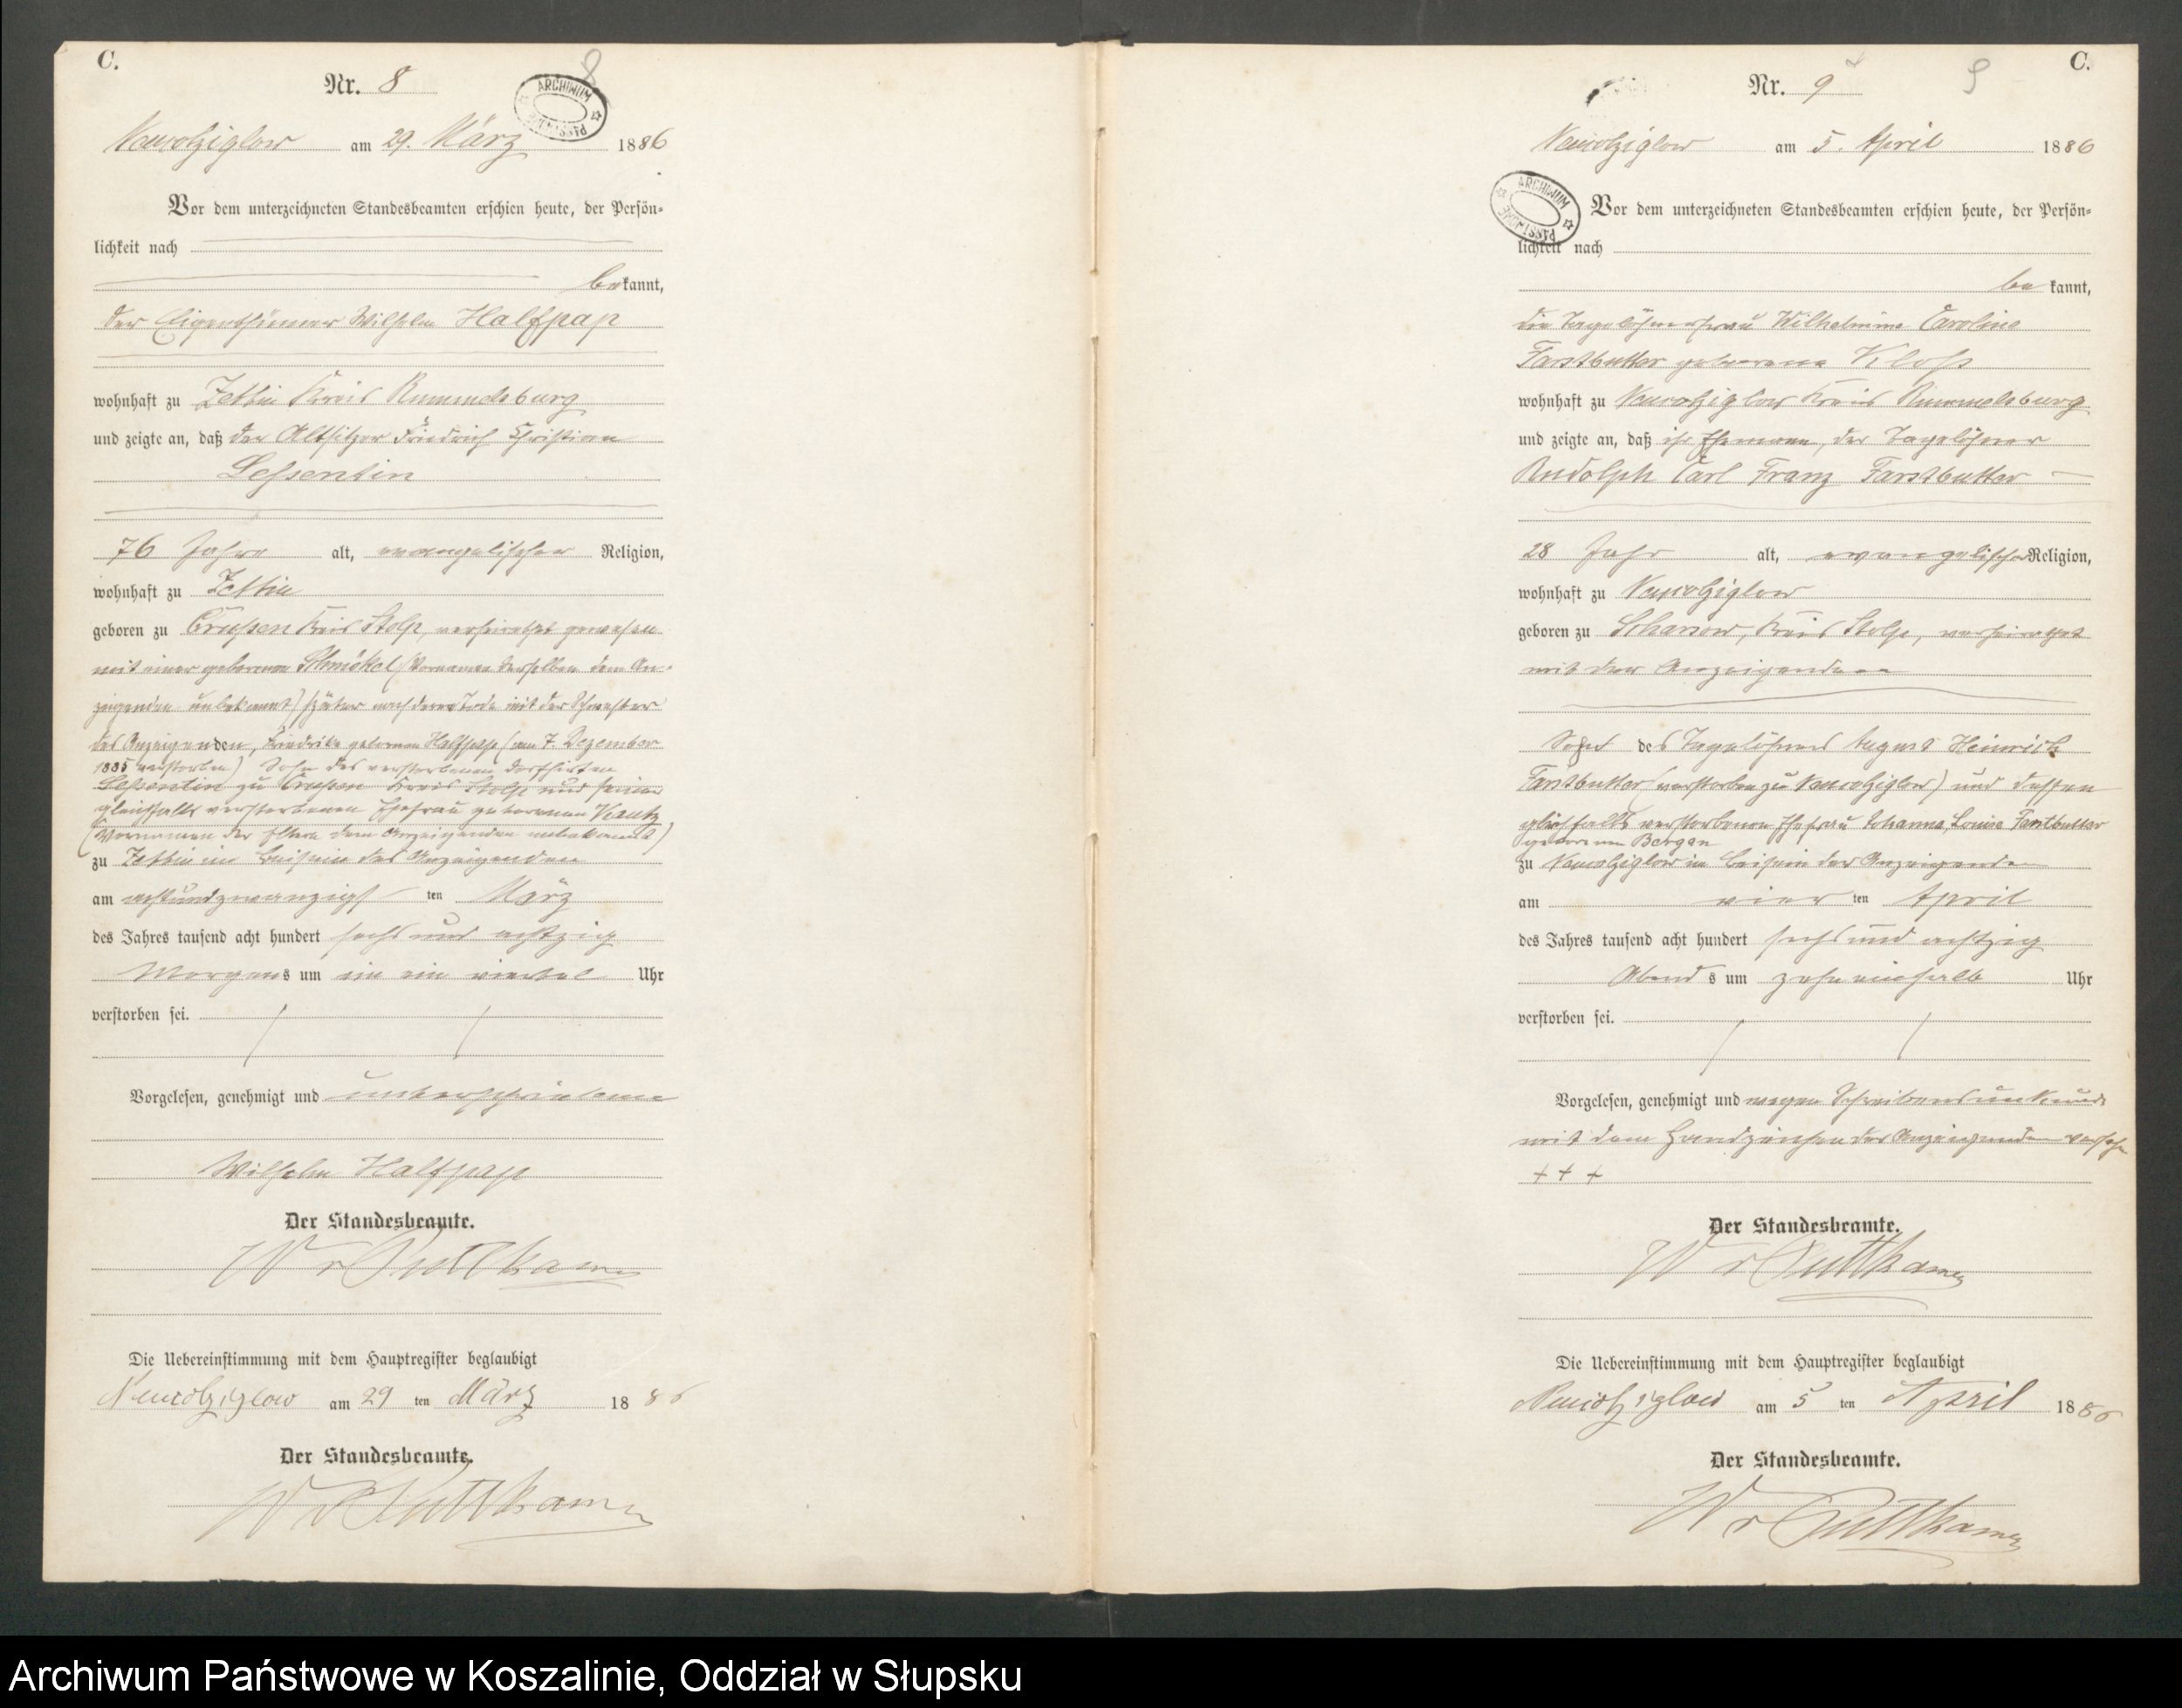 C.
Nr. 8
8
ARCHIWUM PAŃSTWOWE
Neuwolziglow am 29. März 1886
Vor dem unterzeichneten Standesbeamten erschien heute, der Persön-
lichkeit nach
bekannt,
der Eigenthümer Wilhelm Halfpap
wohnhaft zu Zettin Kreis Rummelsburg
und zeigte an, daß der Altsitzer Friedrich Christian
Lessentin
76 Jahre alt, evangelischer Religion,
wohnhaft zu Zettin
geboren zu Crussen Kreis Stolp, verheirathet gewesen
mit einer geborenen Schmickel (Vornamen derselben dem An-
zeigenden unbekannt) später nach deren Tode mit der Schwester
des Anzeigenden, Friedrike geborenen Halfpap (am 7. Dezember
1885 verstorben) Sohn des verstorbenen Dorfhirten
Lessentin zu Crussen Kreis Stolp und seiner
gleichfalls verstorbenen Ehefrau geborenen Kautz
(Vornamen der Eltern dem Anzeigenden unbekannt)
zu Zettin im Beisein des Anzeigenden
am achtundzwanzigsten März
des Jahres tausend acht hundert sechs und achtzig
Morgens um ein ein viertel Uhr
verstorben sei.
Vorgelesen, genehmigt und unterschrieben
Wilhelm Halfpap
Der Standesbeamte.
W v Puttkamer
Die Uebereinstimmung mit dem Hauptregister beglaubigt
Neuwolziglow am 29 ten März 1886
Der Standesbeamte.
W v Puttkamer
C.
Nr. 9
9
ARCHIWUM PAŃSTWOWE
Neuwolziglow am 5. April 1886
Vor dem unterzeichneten Standesbeamten erschien heute, der Persön-
lichkeit nach
be kannt,
die Tagelöhnerfrau Wilhelmine Caroline
Farstbutter geborene Kloss
wohnhaft zu Neuwolziglow Kreis Rummelsburg
und zeigte an, daß ihr Ehemann, der Tagelöhner
Rudolph Carl Franz Farstbutter
28 Jahr alt, evangelischer Religion,
wohnhaft zu Neuwolziglow
geboren zu Scharsow, Kreis Stolp, verheirathet
mit der Anzeigenden
Sohn des Tagelöhners August Heinrich
Farstbutter (verstorben zu Neuwolziglow) und dessen
gleichfalls verstorbenen Ehefrau Johanna Louise Farstbutter
geborenen Bergan
zu Neuwolziglow im Beisein der Anzeigenden
am vier ten April
des Jahres tausend acht hundert sechs und achtzig
Abend s um zehn einhalb Uhr
verstorben sei.
Vorgelesen, genehmigt und wegen Schreibensunkunde
mit dem Handzeichen der Anzeigenden versehen
+ + +
Der Standesbeamte.
W v Puttkamer
Die Uebereinstimmung mit dem Hauptregister beglaubigt
Neuwolziglow am 5 ten April 1886
Der Standesbeamte.
W v Puttkamer
Archiwum Państwowe w Koszalinie, Oddział w Słupsku